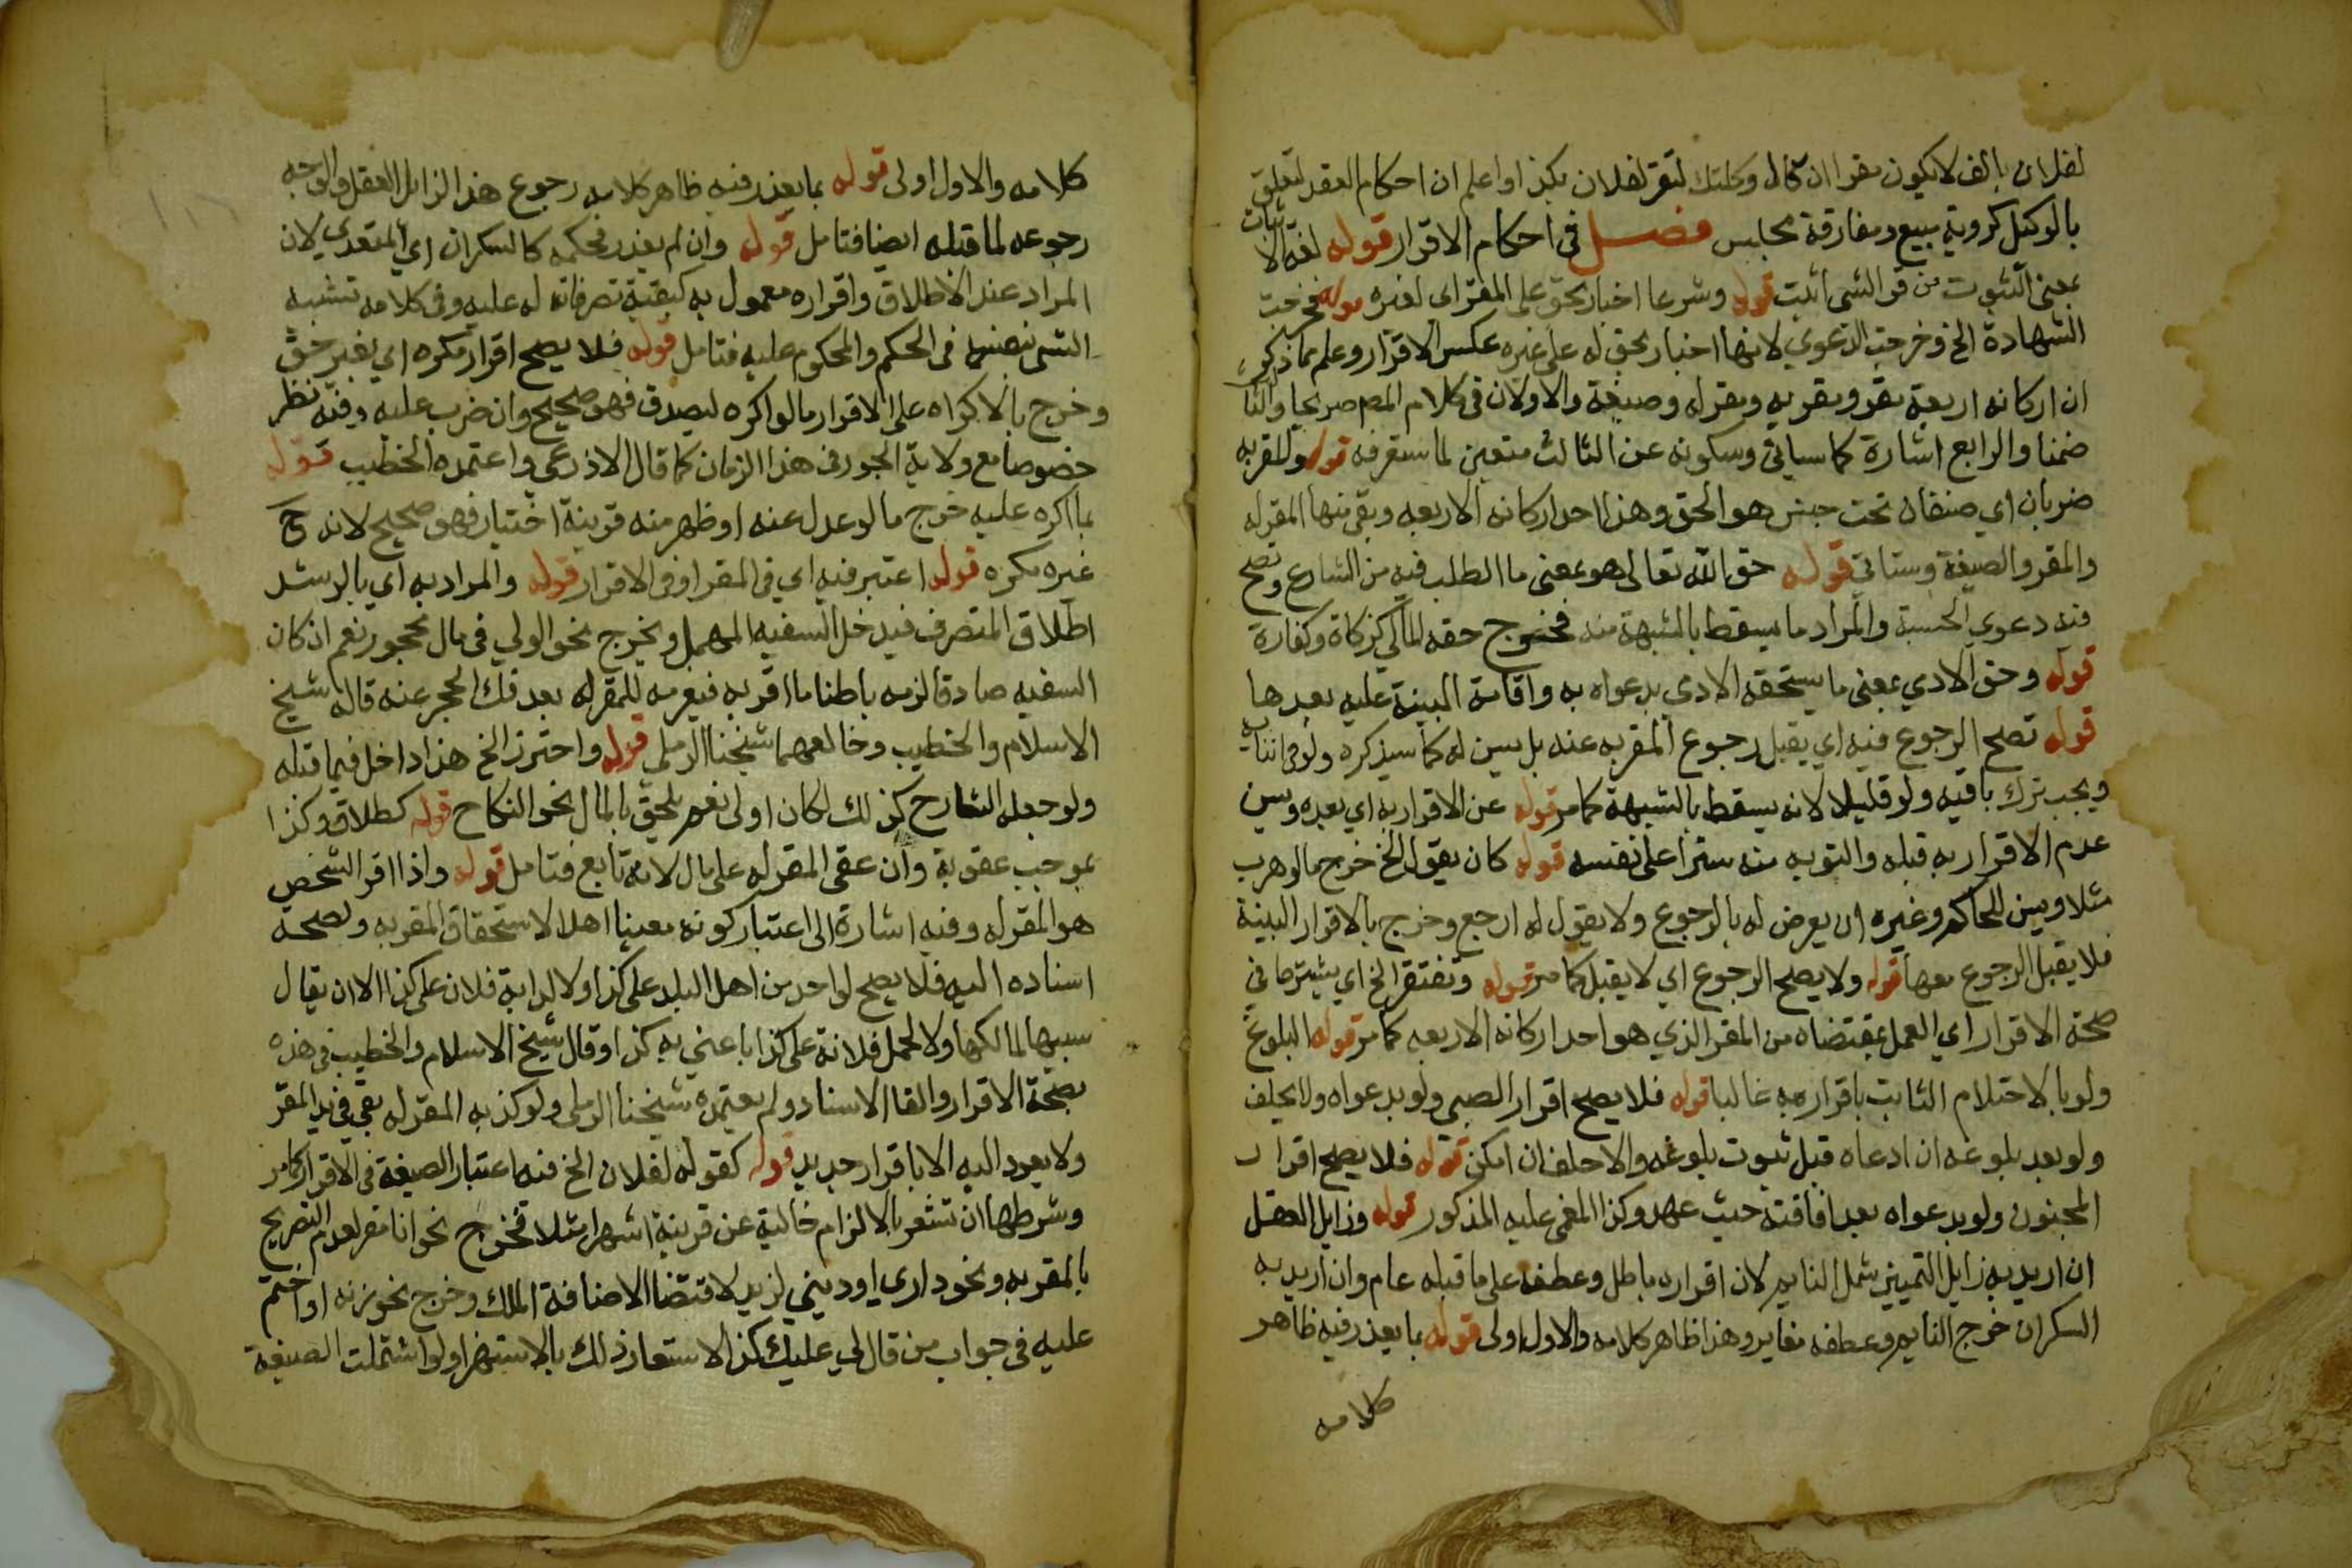 لفلان بالف لا يكون مقرا ان قال وكلتك لتقر لفلان بكذا واعلم ان احكام العقد تتعلق
بالوكيل كروية مبيع ومفارقة مجلس فصـــل في احكام الاقرار قوله لغة الاثبات
بمعنى الثبوت من قر الشي ثبت قوله وشرعا اخبار بحق على المقر اي لغيره قوله فخرجت
الشهادة الخ وخرجت الدعوي لانها اخبار بحق له على غيره عكس الاقرار وعلم مما ذكر
ان اركانه اربعة مقر ومقر به ومقر له وصيغة والاولان في كلام المص صريحا والثالث
ضمنا والرابع اشارة كما سياتي وسكوته عن الثالث متعين لما ستعرفه قوله والمقر به
ضربان اي صنفان تحت جنس هو الحق وهذا احد اركانه الاربعه وبقي منها المقر له
والمقر والصيغة وستاتي قوله حق الله تعالى هو بمعنى ما الطلب فيه من الشارع وتصح
فيه دعوي الحسبة والمراد ما يسقط بالشبهة منه فخرج حقه المالي كزكاة وكفارة
قوله وحق الادمي بمعنى ما يستحقه الادمي بدعواه به واقامة البينة عليه بعدها
قوله تصح الرجوع فيه اي يقبل رجوع المقر به عنه بل يسن له كما سيذكره ولو في اثنايه
ويجب ترك باقيه ولو قليلا لانه يسقط بالشبهة كما مر قوله عن الاقرار به اي بعده ويسن
عدم الاقرار به قبله والتوبه منه سترا على نفسه قوله كان يقول الخ خرج ما لو هرب
مثلا ويسن للحاكم وغيره ان يعرض له بالرجوع ولا يقول له ارجع وخرج بالاقرار البينة
فلا يقبل الرجوع معها قوله ولا يصح الرجوع اي لا يقبل كما مر قوله وتفتقر الخ اي يشترط في
صحة الاقرار اي العمل بمقتضاه من المقر الذي هو احد اركانه الاربعه كما مر قوله البلوغ
ولو بالاحتلام الثابت باقراره به غالبا قوله فلا يصح اقرار الصبي ولو بدعواه ولا يحلف
ولو بعد بلوغه ان ادعاه قبل ثبوت بلوغه والا حلف ان امكن قوله فلا يصح اقرار
المجنون ولو بدعواه بعد افاقته حيث عهد وكذا المغمى عليه المذكور قوله وزايل العقل
ان اريد به زايل التمييز شمل النايم لان اقراره باطل وعطفه على ما قبله عام وان اريد به
السكران خرج النايم وعطفه مغاير وهذا ظاهر كلامه والاول اولى قوله بما يعذر فيه ظاهر
كلامه
كلامه والاول اولى قوله بما يعذر فيه ظاهر كلامه رجوع هذا لزايل العقل والوجه
رجوعه لما قبله ايضا فتامل قوله وان لم يعذر فحكمه كالسكران اي المتعدي لان
المراد عند الاطلاق واقراره معمول به كبقية تصرفاته له عليه وفي كلامه تشبيه
الشي بنفسه في الحكم والمحكوم عليه فتامل قوله فلا يصح اقرار مكره اي بغير حق
وخرج بالاكراه على الاقرار ما لو اكره ليصدق فهو صحيح وان ضرب عليه وفيه نظر
خصوصا مع ولاية الجور في هذا الزمان كما قال الاذرعي واعتمده الخطيب قوله
بما اكره عليه خرج ما لو عدل عنه او ظهر منه قرينة اختيار فهو صحيح لانه ح
غير مكره قوله اعتبر فيه اي في المقر او في الاقرار قوله والمراد به اي بالرشد
اطلاق المتصرف فيدخل السفيه المهمل ويخرج نحو الولي في مال محجوره نعم ان كان
السفيه صادقا لزمه باطنا ما اقر به فيغرمه للمقر له بعد فك الحجر عنه قاله شيخ
الاسلام والخطيب وخالفهما شيخنا الرملي قوله واحترز الخ هذا داخل فيما قبله
ولو جعله الشارح كذلك لكان اولى نعم يلحق بالمال نحو النكاح قوله كطلاق وكذا
بموجب عقوبة وان عفى المقر له على مال لانه تابع فتامل قوله واذا اقر الشخص
هو المقر له وفيه اشارة الى اعتبار كونه معينا اهلا لاستحقاق المقر به ولصحة
اسناده اليه فلا يصح لواحد من اهل البلد على كذا ولا لدابة فلان على كذا الا ان يقال
بسببها لمالكها ولا لحمل فلانة على كذا باعني به كذا وقال شيخ الاسلام والخطيب في هذه
بصحة الاقرار والغا الاسناد ولم يعتمده شيخنا الرملي ولو كذبه المقر له بقي في يد المقر
ولا يعود اليه الا باقرار جديد قوله كقوله لفلان الخ فيه اعتبار الصيغة في الاقرار كما مر
وشرطها ان تشعر بالالزام خالية عن قرينة استهزا مثلا فخرج نحو انا مقر لعدم التصريح
بالمقر به ونحو داري او ديني لزيد لاقتضا الاضافة الملك وخرج نحو زنه او اختم
عليه في جواب من قال لي عليك كذا لاستعار ذلك بالاستهزا ولو اشتملت الصيغة